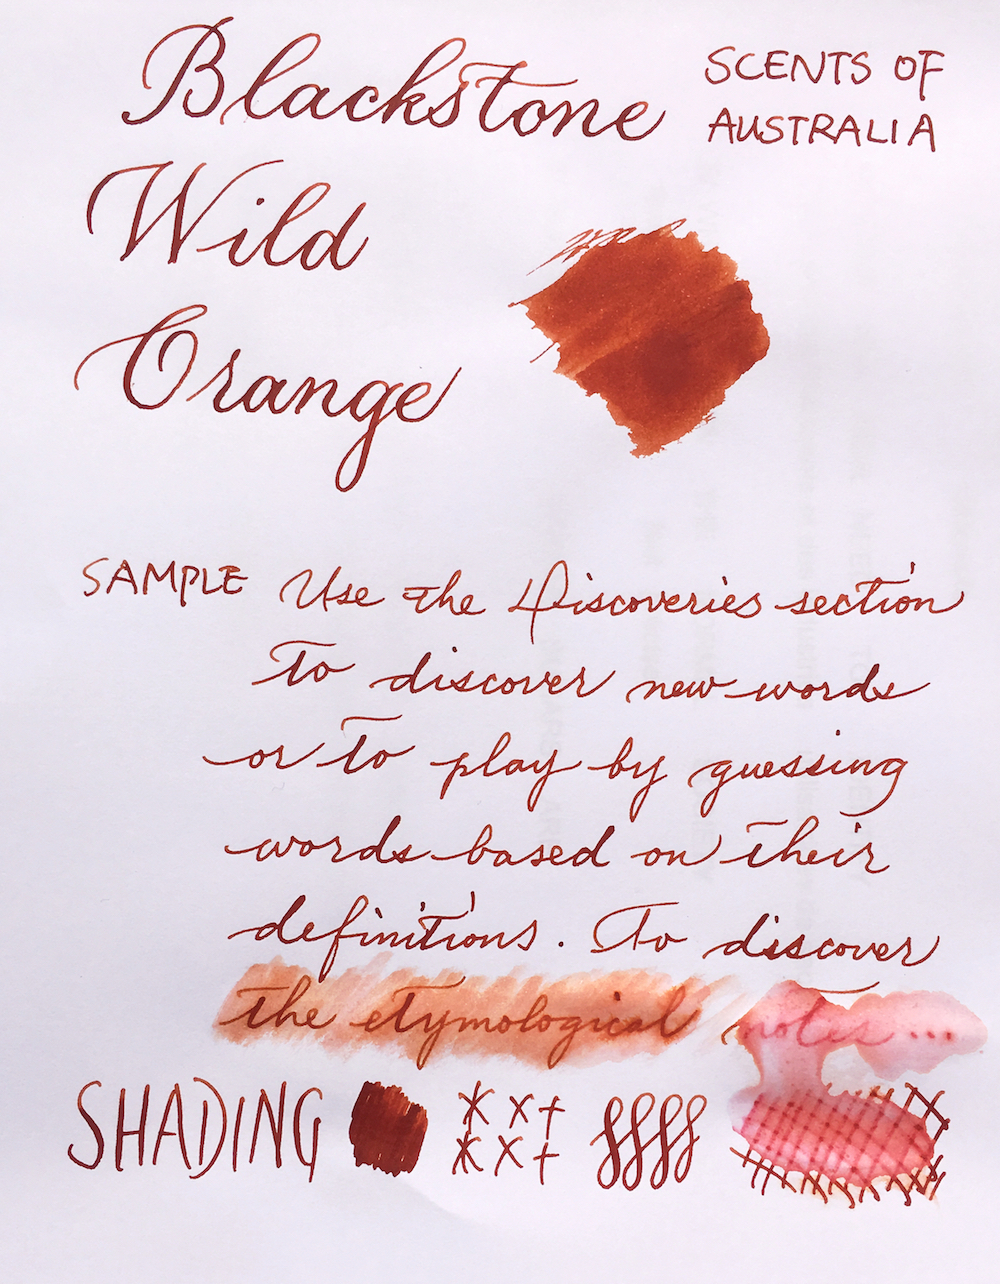 Blackstone
SCENTS OF
AUSTRALIA
Wild
Orange
SAMPLE Use the Discoveries section
to discover new words
or to play by guessing
words based on their
definitions. To discover
the etymological notes...
SHADING